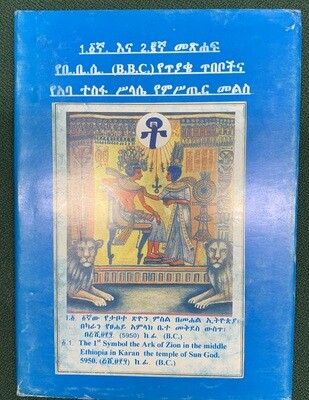 1.፩ኛ. እና 2.፪ኛ መጽሐፍ
የቢ.ቢ.ሲ. (B.B.C.) የጥያቄ ጥበቦችና
የአባ ተስፋ ሥላሴ የምሥጢር መልስ
1.፩ ፩ኛው የታቦተ ጽዮን ምስል በመሐል ኢትዮጵያ፤
በካራን የፀሐይ አምላክ ቤተ መቅደስ ውስጥ፤
(5950) ከ ፊ (B.C.)
፩.1. The 1st Symbol the Ark of Zion in the middle
Ethiopia in Karan the temple of Sun God.
5950. ከ ፊ (B.C.)